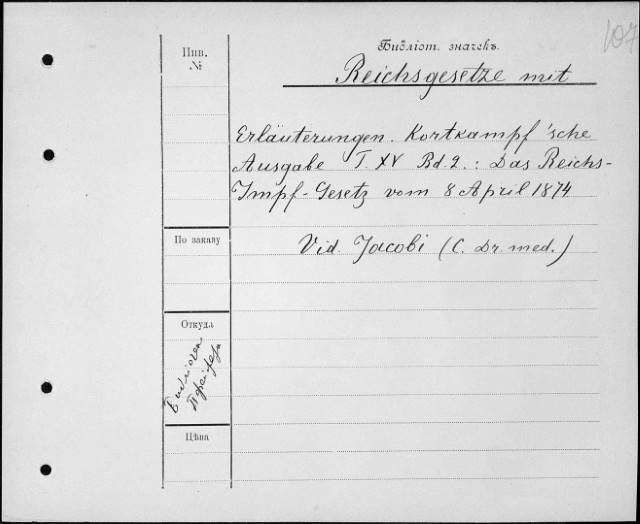 107
Библіот. значекъ.
Инв.
№
Reichsgesetze mit
Erläuterungen. Kortkampf'sche
Ausgabe T. XV Bd. 2. : Das Reichs-
Impf-Gesetz vom 8 April 1874
По заказу
Vid. Jacobi (C. Dr. med.)
Откуда
Цѣна